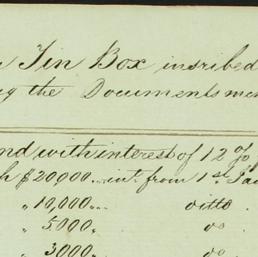 Tin Box insribed
the Documents
and with interest of 12 %
$20,000 ... int. from 1st Jan
" 10,000 ... ditto
" 5,000 . do
" 3,000 do